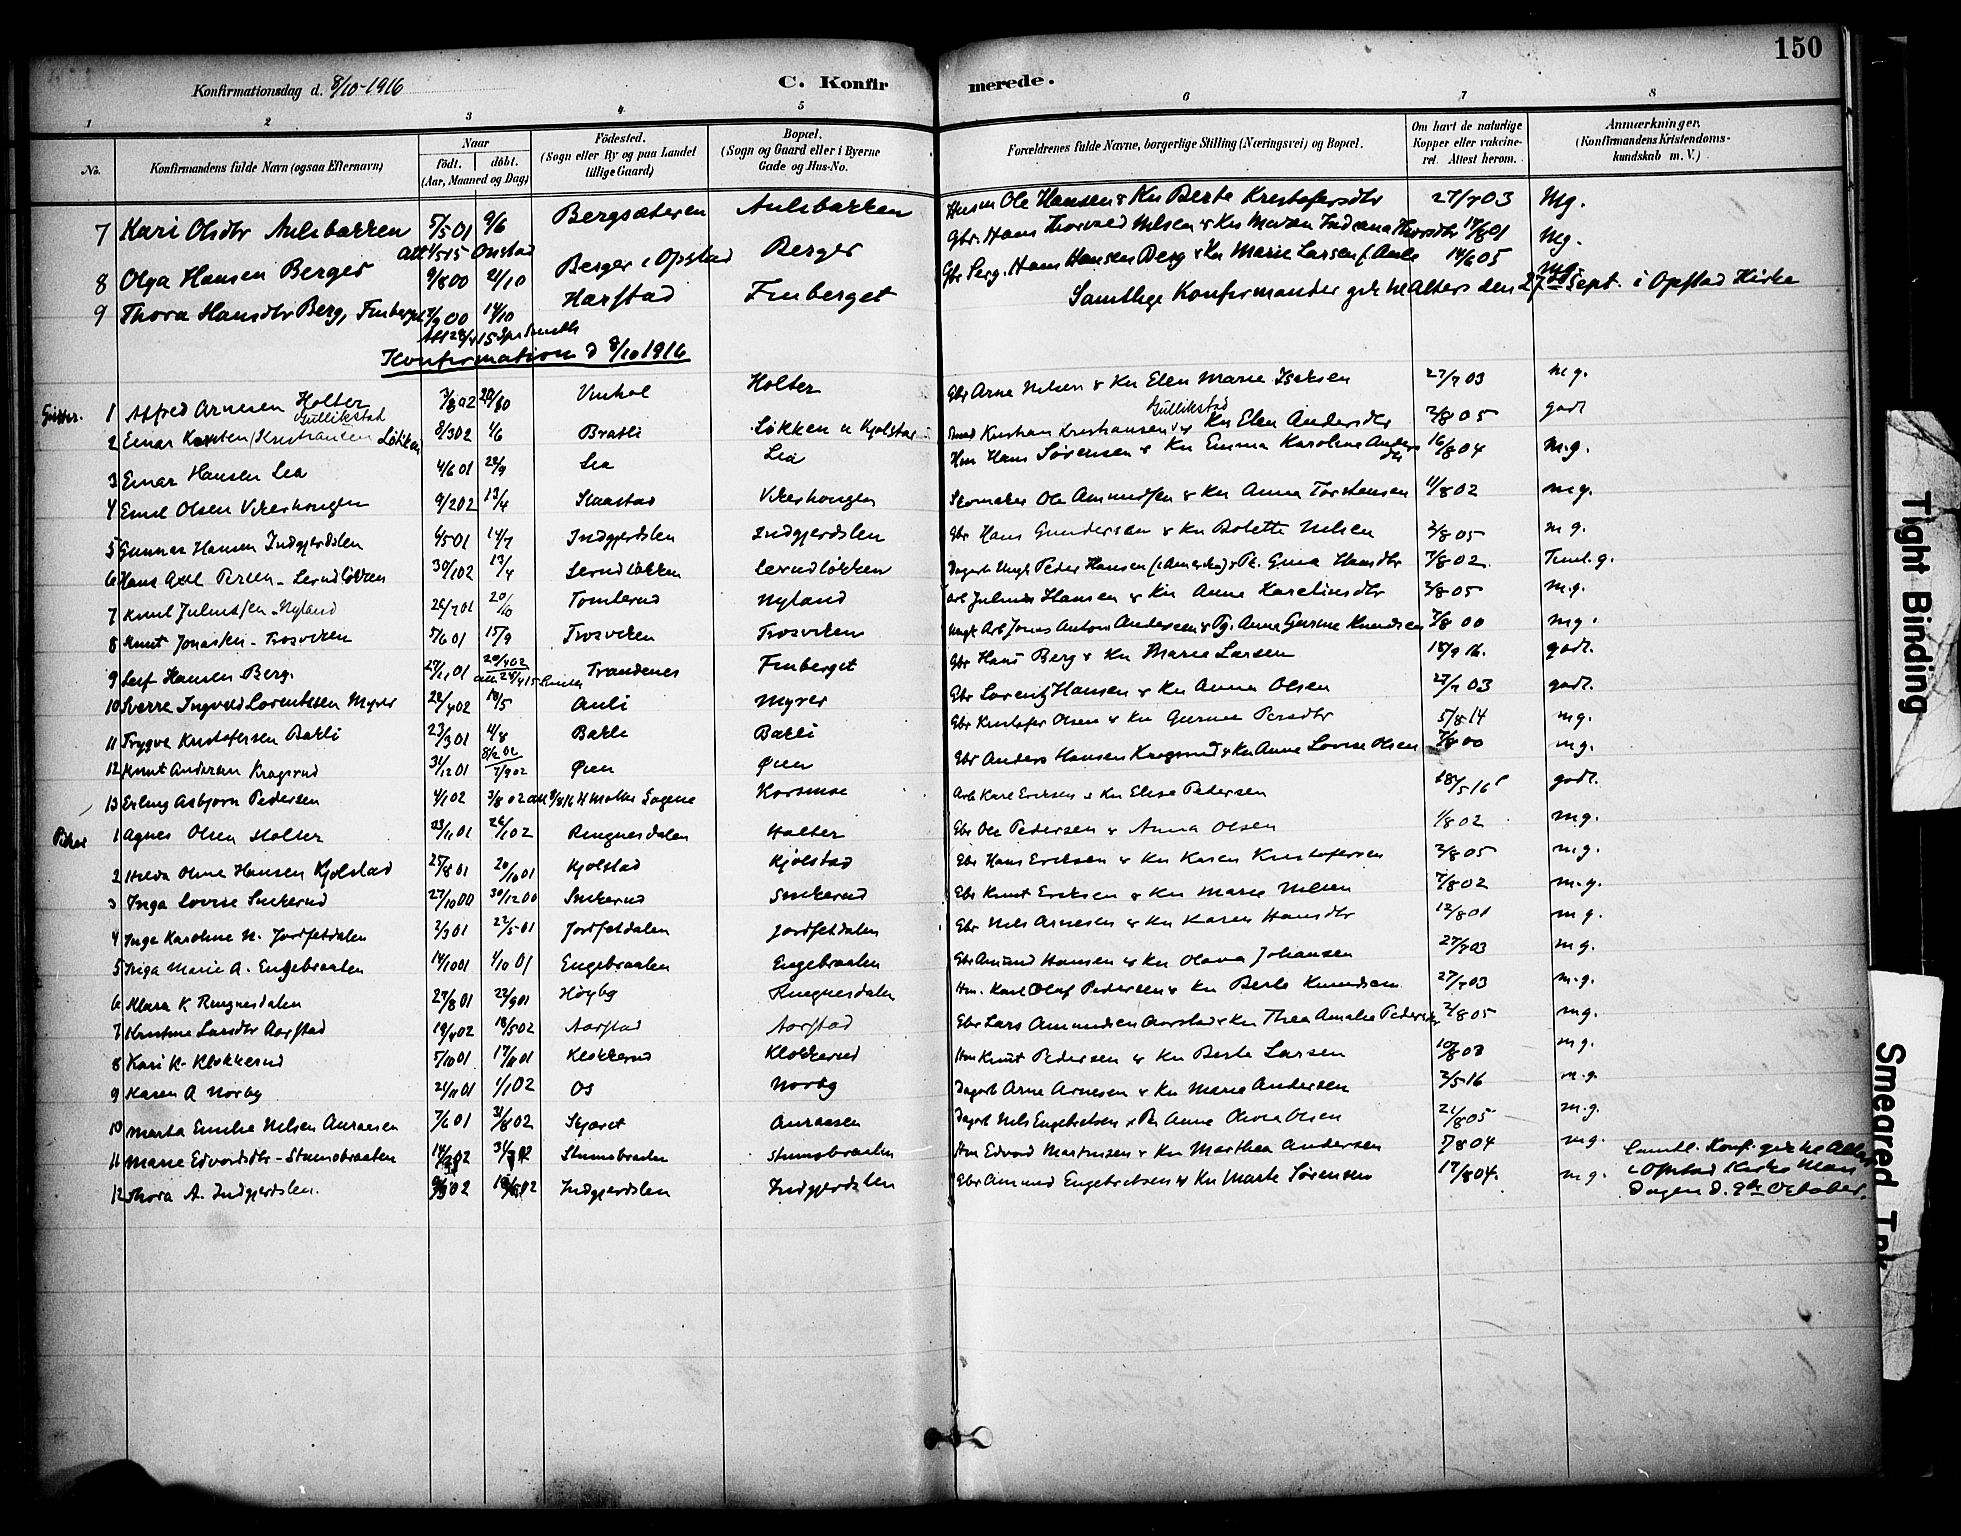 150
Konfirmationsdag d. 8/10-1916
C. Konfirmerede.
1 2 3 4 5 6 7 8
No. Konfirmandens fulde Navn (ogsaa Efternavn) Naar født. døbt. (Aar, Maaned og Dag) Fødested. (Sogn eller By og paa Landet tillige Gaard) Bopæl. (Sogn og Gaard eller i Byerne Gade og Hus-No. Forældrenes fulde Navne, borgerlige Stilling (Næringsvei) og Bopæl. Om havt de naturlige Kopper eller vakcineret. Attest herom. Anmærkninger. (Konfirmandens Kristendomskundskab m. V.)
7 Kari Olsdtr Aulibakken 5/5 01 9/6 Bergsæteren Aulibakken Husm Ole Hansen & Kn Berte Kristofersdtr 27/7 03 Mg.
8 Olga Hansen Berger 9/8 00 21/10 Berger i Opstad Berger Gbr. Hans Thorvald Nilsen & Kn Maren Indiana Thorsdtr 17/8 01 Mg.
9 Thora Hansdtr Berg, Finberget 00 14/10 Harstad Finberget Gbr Serg. Hans Hansen Berg & Kn Marie Larsen f. Auli 14/6 05 mg.
Samtlige Konfirmander gik til Alters den 27de Sept. i Opstad Kirke
Konfirmation d 8/10 1916
Gutter. 1 Alfred Arnesen Holter 02 Vinhol Holter Gbr Arne Nilsen & Kn Elen Marie Isaksen 27/7 03 m.g.
Gullikstad Gullikstad
2 Einar Kristiansen Løkken 8/3 02 1/6 Bratli Løkken u Kjølstad Kristian Kristiansen & Kn Elen Andersdtr 2/8 05 godt
3 Einar Hansen Lia 4/6 01 29/9 Lia Lia Hm Hans Sørensen & Kn Emma Karoline Andersdtr 16/8 04 m.g.
4 Emil Olsen Vikershougen 9/2 02 13/4 Skaastad Vikershougen Skomaker Ole Amundsen & Kn Anna Torstensen 11/8 02 mg.
5 Gunnar Hansen Indgjerdslen 4/5 01 14/7 Indgjerdslen Indgjerdslen Gbr Hans Gundersen & Kn Bolette Nilsen 2/8 05 m g.
6 Hans Axel Persen - Lerudløkken 30/1 02 13/4 Lerudløkken Lerudløkken Peder Hansen (i Amerika) & Pk. Gina Hansdtr 7/8 02 Teml. g.
7 Knut Juliussen - Nyland 26/7 01 20/10 Tomterud Nyland Arb Julius Hansen & Kn Anne Karelinsdtr 2/8 05 m.g.
8 Knut Jonassen - Trosviken 5/6 01 15/9 Trosviken Trosviken Ungk Arb Jonas Anton Andersen & Pg. Anne Gurine Knudsen 7/8 00 mg.
9 Leif Hansen Berg. 01 20/4 02 Trandenes Finberget Gbr Hans Berg & Kn Marie Larsen 18/9 16. godt.
10 Sverre Ingvald Lorentzsen Myrer 22/4 02 18/5 Auli Myrer Gbr Lorentz Hansen & Kn Anna Olsen 27/7 03 godt.
11 Trygve Kristofersen Bakli 23/3 01 11/8 Bakli Bakli Gbr Kristofer Olsen & Kn Gurine Persdtr 5/8 14 mg.
12 Knut Andersen Kragsrud 31/12 01 8/2 02 7/9 02 Øien Øien Gbr Anders Hansen Kragsrud & Kn Anne Lovise Olsen 7/8 00 mg.
13 Erling Asbjørn Pedersen 4/1 02 3/8 02 Sagene Korsmoe Arb Karl Eriksen & Kn Elise Pedersen 18/5 16 godt.
Piker 1 Agnes Olsen Holter 23/11 01 26/1 02 Ringnesdalen Holter Gbr Ole Pedersen & Anna Olsen 1/8 02 mg.
2 Hilda Oline Hansen Kjølstad 25/8 01 20/10 01 Kjølstad Kjølstad Gbr Hans Eriksen & Kn Karen Kristofersen 2/8 05 mg.
3 Inga Lovise Snikerud 27/10 00 30/12 00 Snikerud Snikerud Gbr Knut Eriksen & Kn Marie Nilsen 7/8 02 m.g.
4 Inga Karoline N. Jordfetdalen 2/3 01 22/5 01 Jordfetdalen Jordfetdalen Gbr Nils Arnesen & Kn Karen Hansdtr 12/8 01 m g.
5 Inga Marie A. Engebraaten 14/10 01 Engebraaten Engebraaten Gbr Amund Hansen & Kn Olava Johansen 27/7 03 m g.
6 Klara K Ringnesdalen 27/8 01 22/9 01 Høyby Ringnesdalen Hm. Karl Olaf Pedersen & Kn Berte Knudsen 27/7 03 m.g.
7 Kristine Larsdtr Aarstad 19/4 02 18/5 02 Aarstad Aarstad Gbr Lars Amundsen Aarstad & Kn Thea Amalie Pedersdtr 2/8 05 mg.
8 Kari K. Klokkerud 5/10 01 17/11 01 Klokkerud Klokkerud Hm Knut Pedersen & Kn Berte Larsen mg.
9 Karen A Norby 24/11 01 1/1 02 Os Norby Dagarb Arne Arnesen & Kn Marie Andersen 2/5 16 m.g.
10 Marta Emilie Nilsen Auraasen 7/6 01 31/8 02 Skjæret Auraasen Dagarb Nils Engebretsen & Kn Anne Olivia Olsen 21/8 05 m.g.
11 Marie Edvardsdtr - Stumobraaten 02 Stumobraaten Stumobraaten Hm Edvard Martinsen & Kn Marthea Andersen 5/8 04 mg.
12 Thora A. Indgjerdslen. 02 Indgjerdslen Indgjerdslen Gbr Amund Engebretsen & Kn Marte Sørensen 17/8 04. mg.
Samtl. Konf. gik til Alters
i Opstad Kirke Man
dagen d. 9de October.
Tight Binding
Smeared